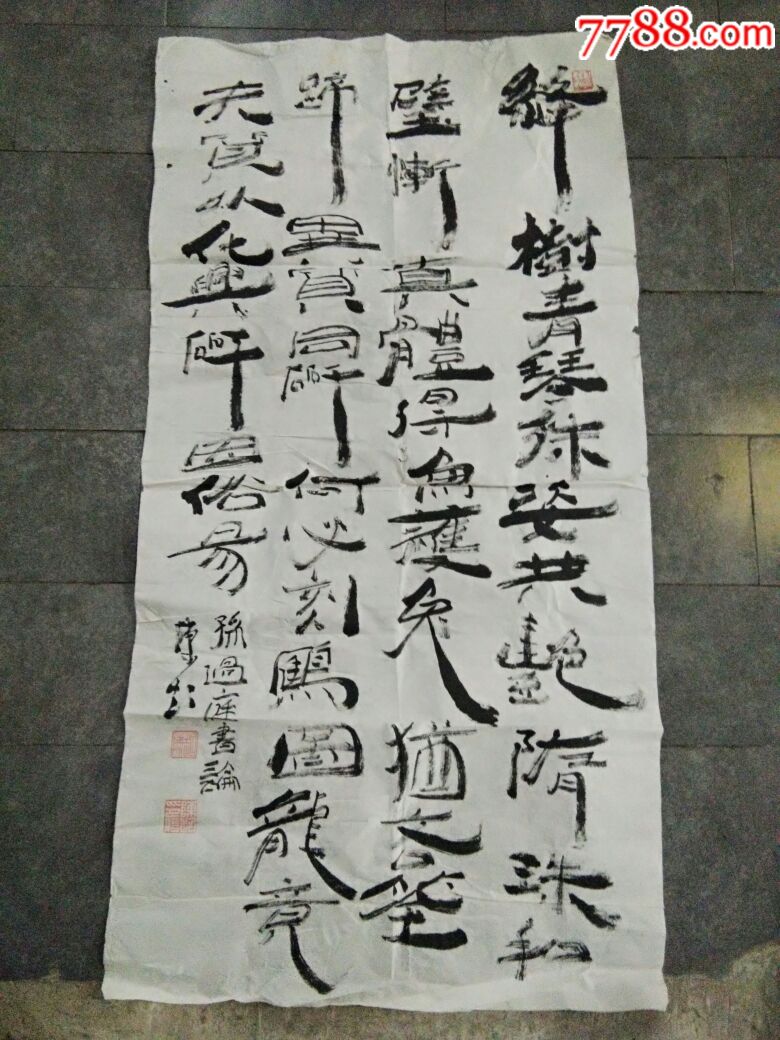 絳樹青琴殊姿共艷隋珠和
璧慚真體得魚獲兔猶吝筌
蹄異質同妍何必刻鶴圖龍竟
夫質以代興妍因俗易
孫過庭書論
7788.com